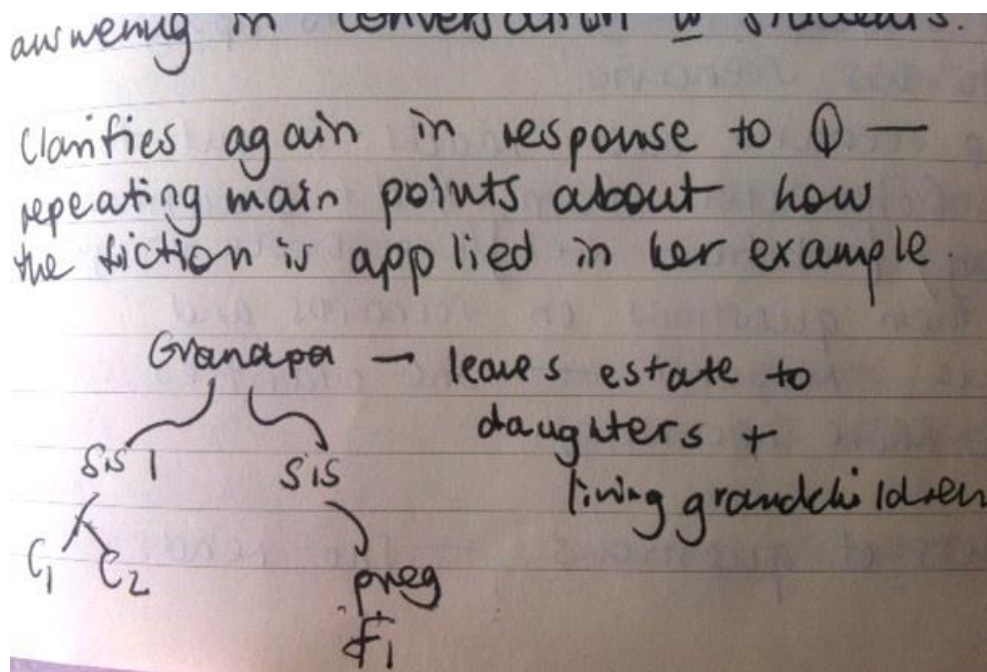 answering in conversation w students.
Clarifies again in response to Q —
repeating main points about how
the fiction is applied in her example.
Grandpa — leaves estate to
daughters +
living grandchildren
Sis 1 Sis
C1 C2
preg
F1